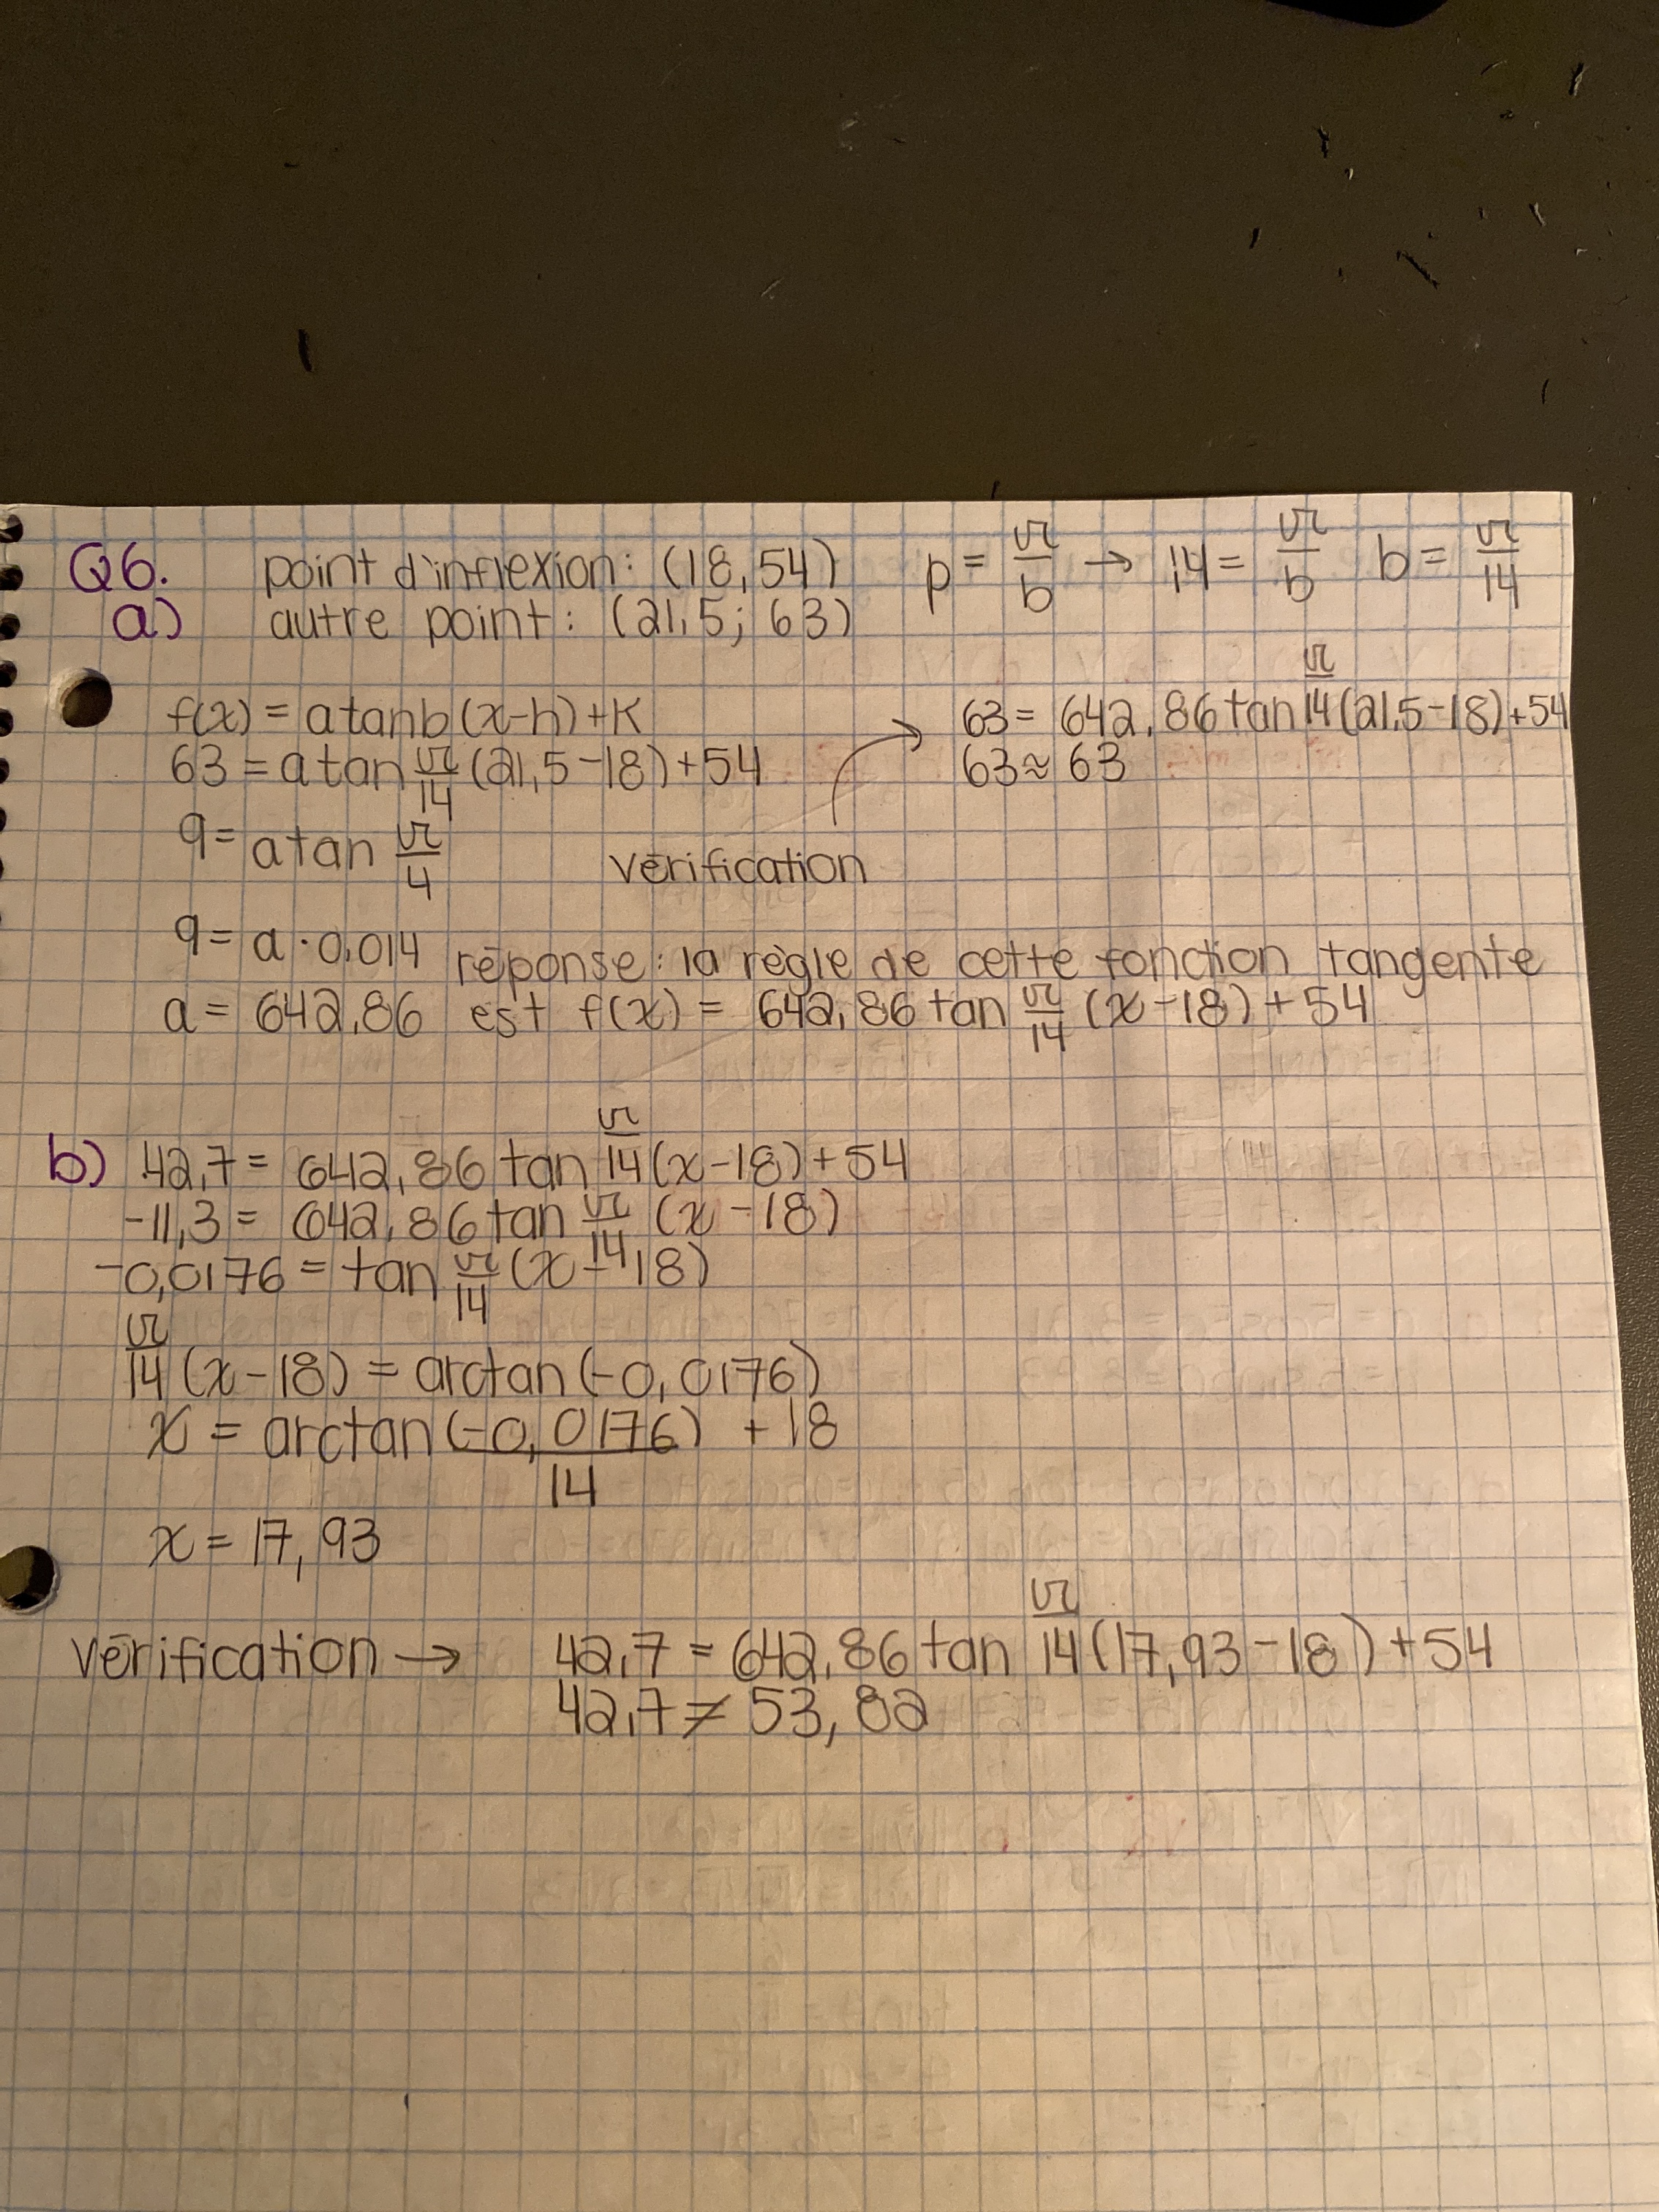 Q6. point d'inflexion: (18,54) p = π/b → 14 = π/b b = π/14
a) autre point: (21,5; 63)
f(x) = a tan b(x-h)+K
63 = a tan π/14 (21,5-18)+54
9 = a tan π/4
9 = a · 0,014
a = 642,86
63 = 642,86 tan π/14 (21,5-18)+54
63 ≈ 63
vérification
réponse: la règle de cette fonction tangente
est f(x) = 642,86 tan π/14 (x-18)+54
b) 42,7 = 642,86 tan π/14 (x-18)+54
-11,3 = 642,86 tan π/14 (x-18)
-0,0176 = tan π/14 (x-18)
π/14 (x-18) = arctan(-0,0176)
x = arctan(-0,0176)/14 + 18
x = 17,93
vérification → 42,7 = 642,86 tan π/14 (17,93-18)+54
42,7 ≠ 53,82